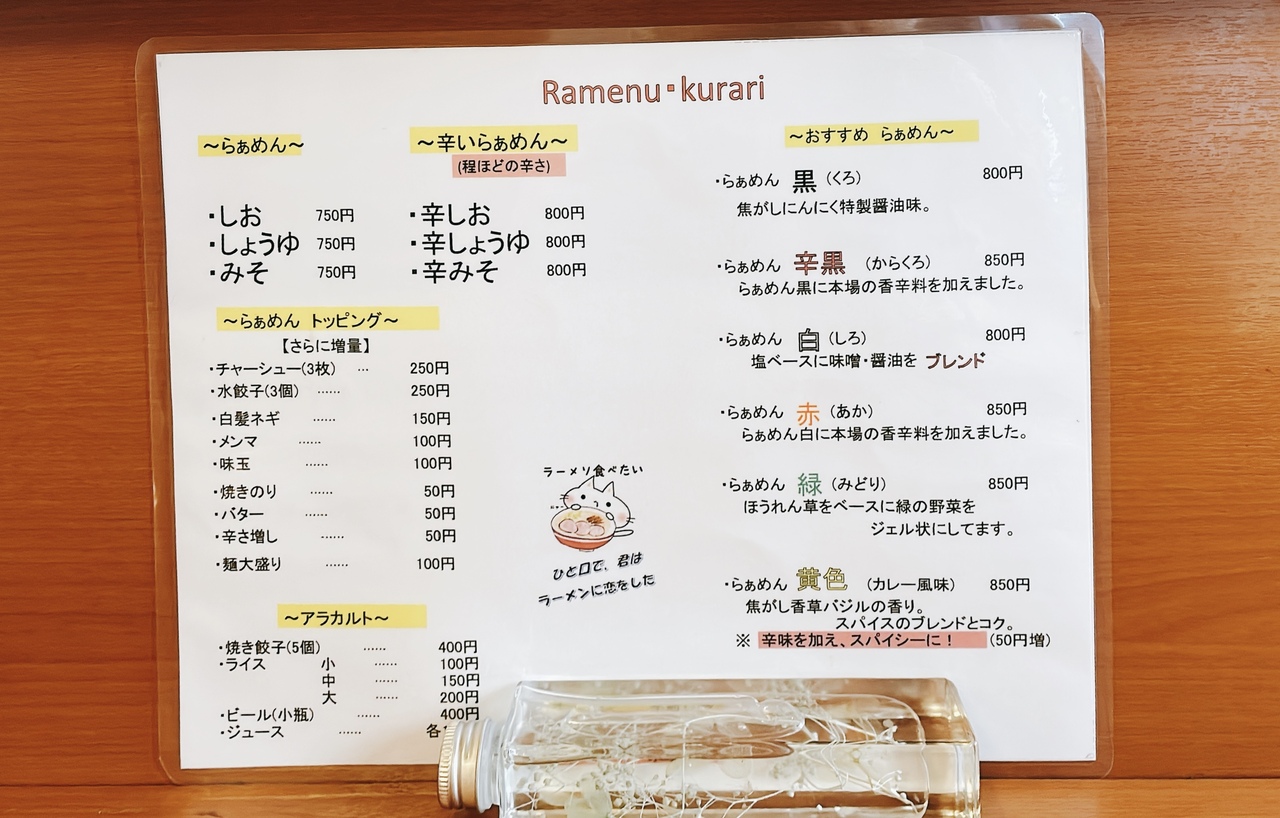 Ramenu・kurari
～らぁめん～
・しお 750円
・しょうゆ 750円
・みそ 750円
～辛いらぁめん～
(程ほどの辛さ)
・辛しお 800円
・辛しょうゆ 800円
・辛みそ 800円
～らぁめん トッピング～
【さらに増量】
・チャーシュー(3枚) … 250円
・水餃子(3個) …… 250円
・白髪ネギ …… 150円
・メンマ …… 100円
・味玉 …… 100円
・焼きのり …… 50円
・バター …… 50円
・辛さ増し …… 50円
・麺大盛り …… 100円
～アラカルト～
・焼き餃子(5個) …… 400円
・ライス 小 …… 100円
中 …… 150円
大 …… 200円
・ビール(小瓶) …… 400円
・ジュース …… 各
ラーメン食べたい
ひと口で、君は
ラーメンに恋をした
～おすすめ らぁめん～
・らぁめん 黒 (くろ) 800円
焦がしにんにく特製醤油味。
・らぁめん 辛黒 (からくろ) 850円
らぁめん黒に本場の香辛料を加えました。
・らぁめん 白 (しろ) 800円
塩ベースに味噌・醤油を ブレンド
・らぁめん 赤 (あか) 850円
らぁめん白に本場の香辛料を加えました。
・らぁめん 緑 (みどり) 850円
ほうれん草をベースに緑の野菜を
ジェル状にしてます。
・らぁめん 黄色 (カレー風味) 850円
焦がし香草バジルの香り。
スパイスのブレンドとコク。
※ 辛味を加え、スパイシーに！ (50円増)